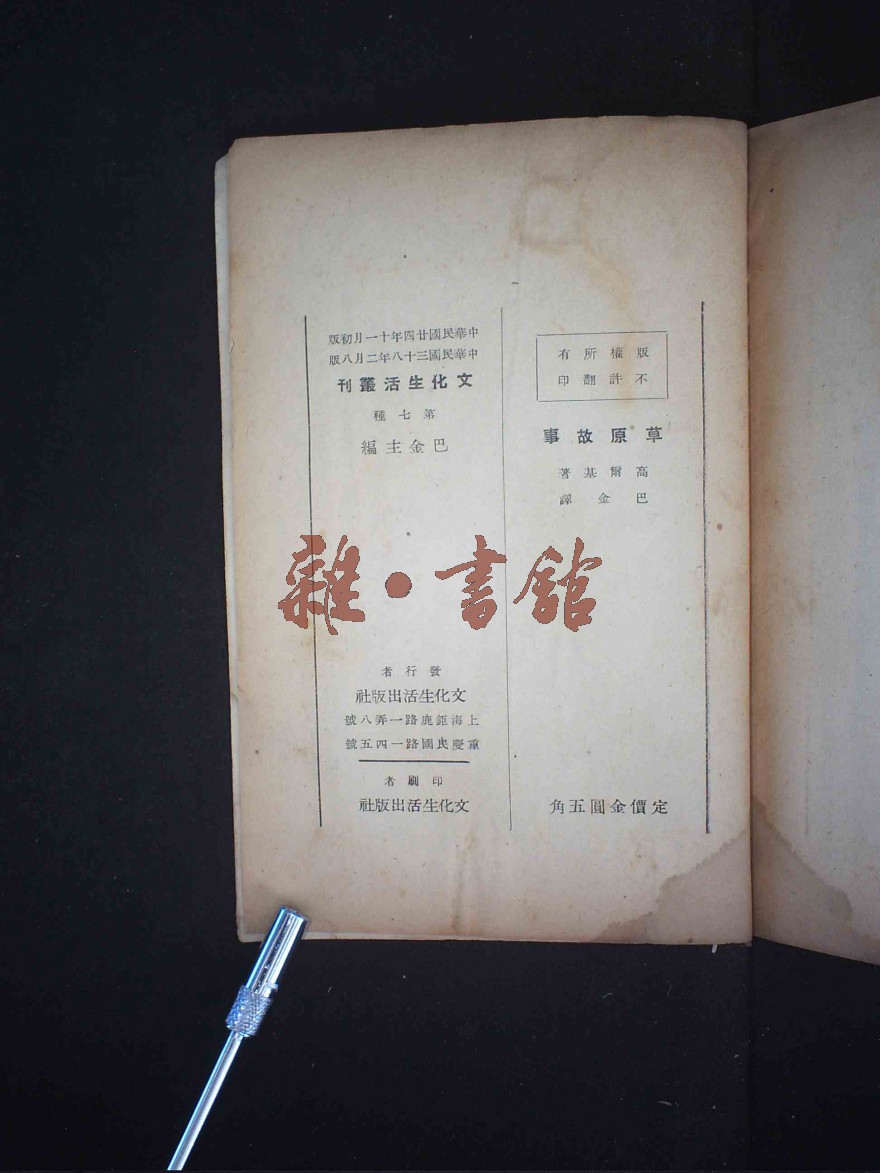 版權所有
不許翻印
草原故事
高爾基著
巴金譯
定價金圓五角
中華民國廿四年十一月初版
中華民國三十八年二月八版
文化生活叢刊
第七種
巴金主編
發行者
文化生活出版社
上海鉅鹿路一弄八號
重慶民國路一四五號
印刷者
文化生活出版社
雜·書館